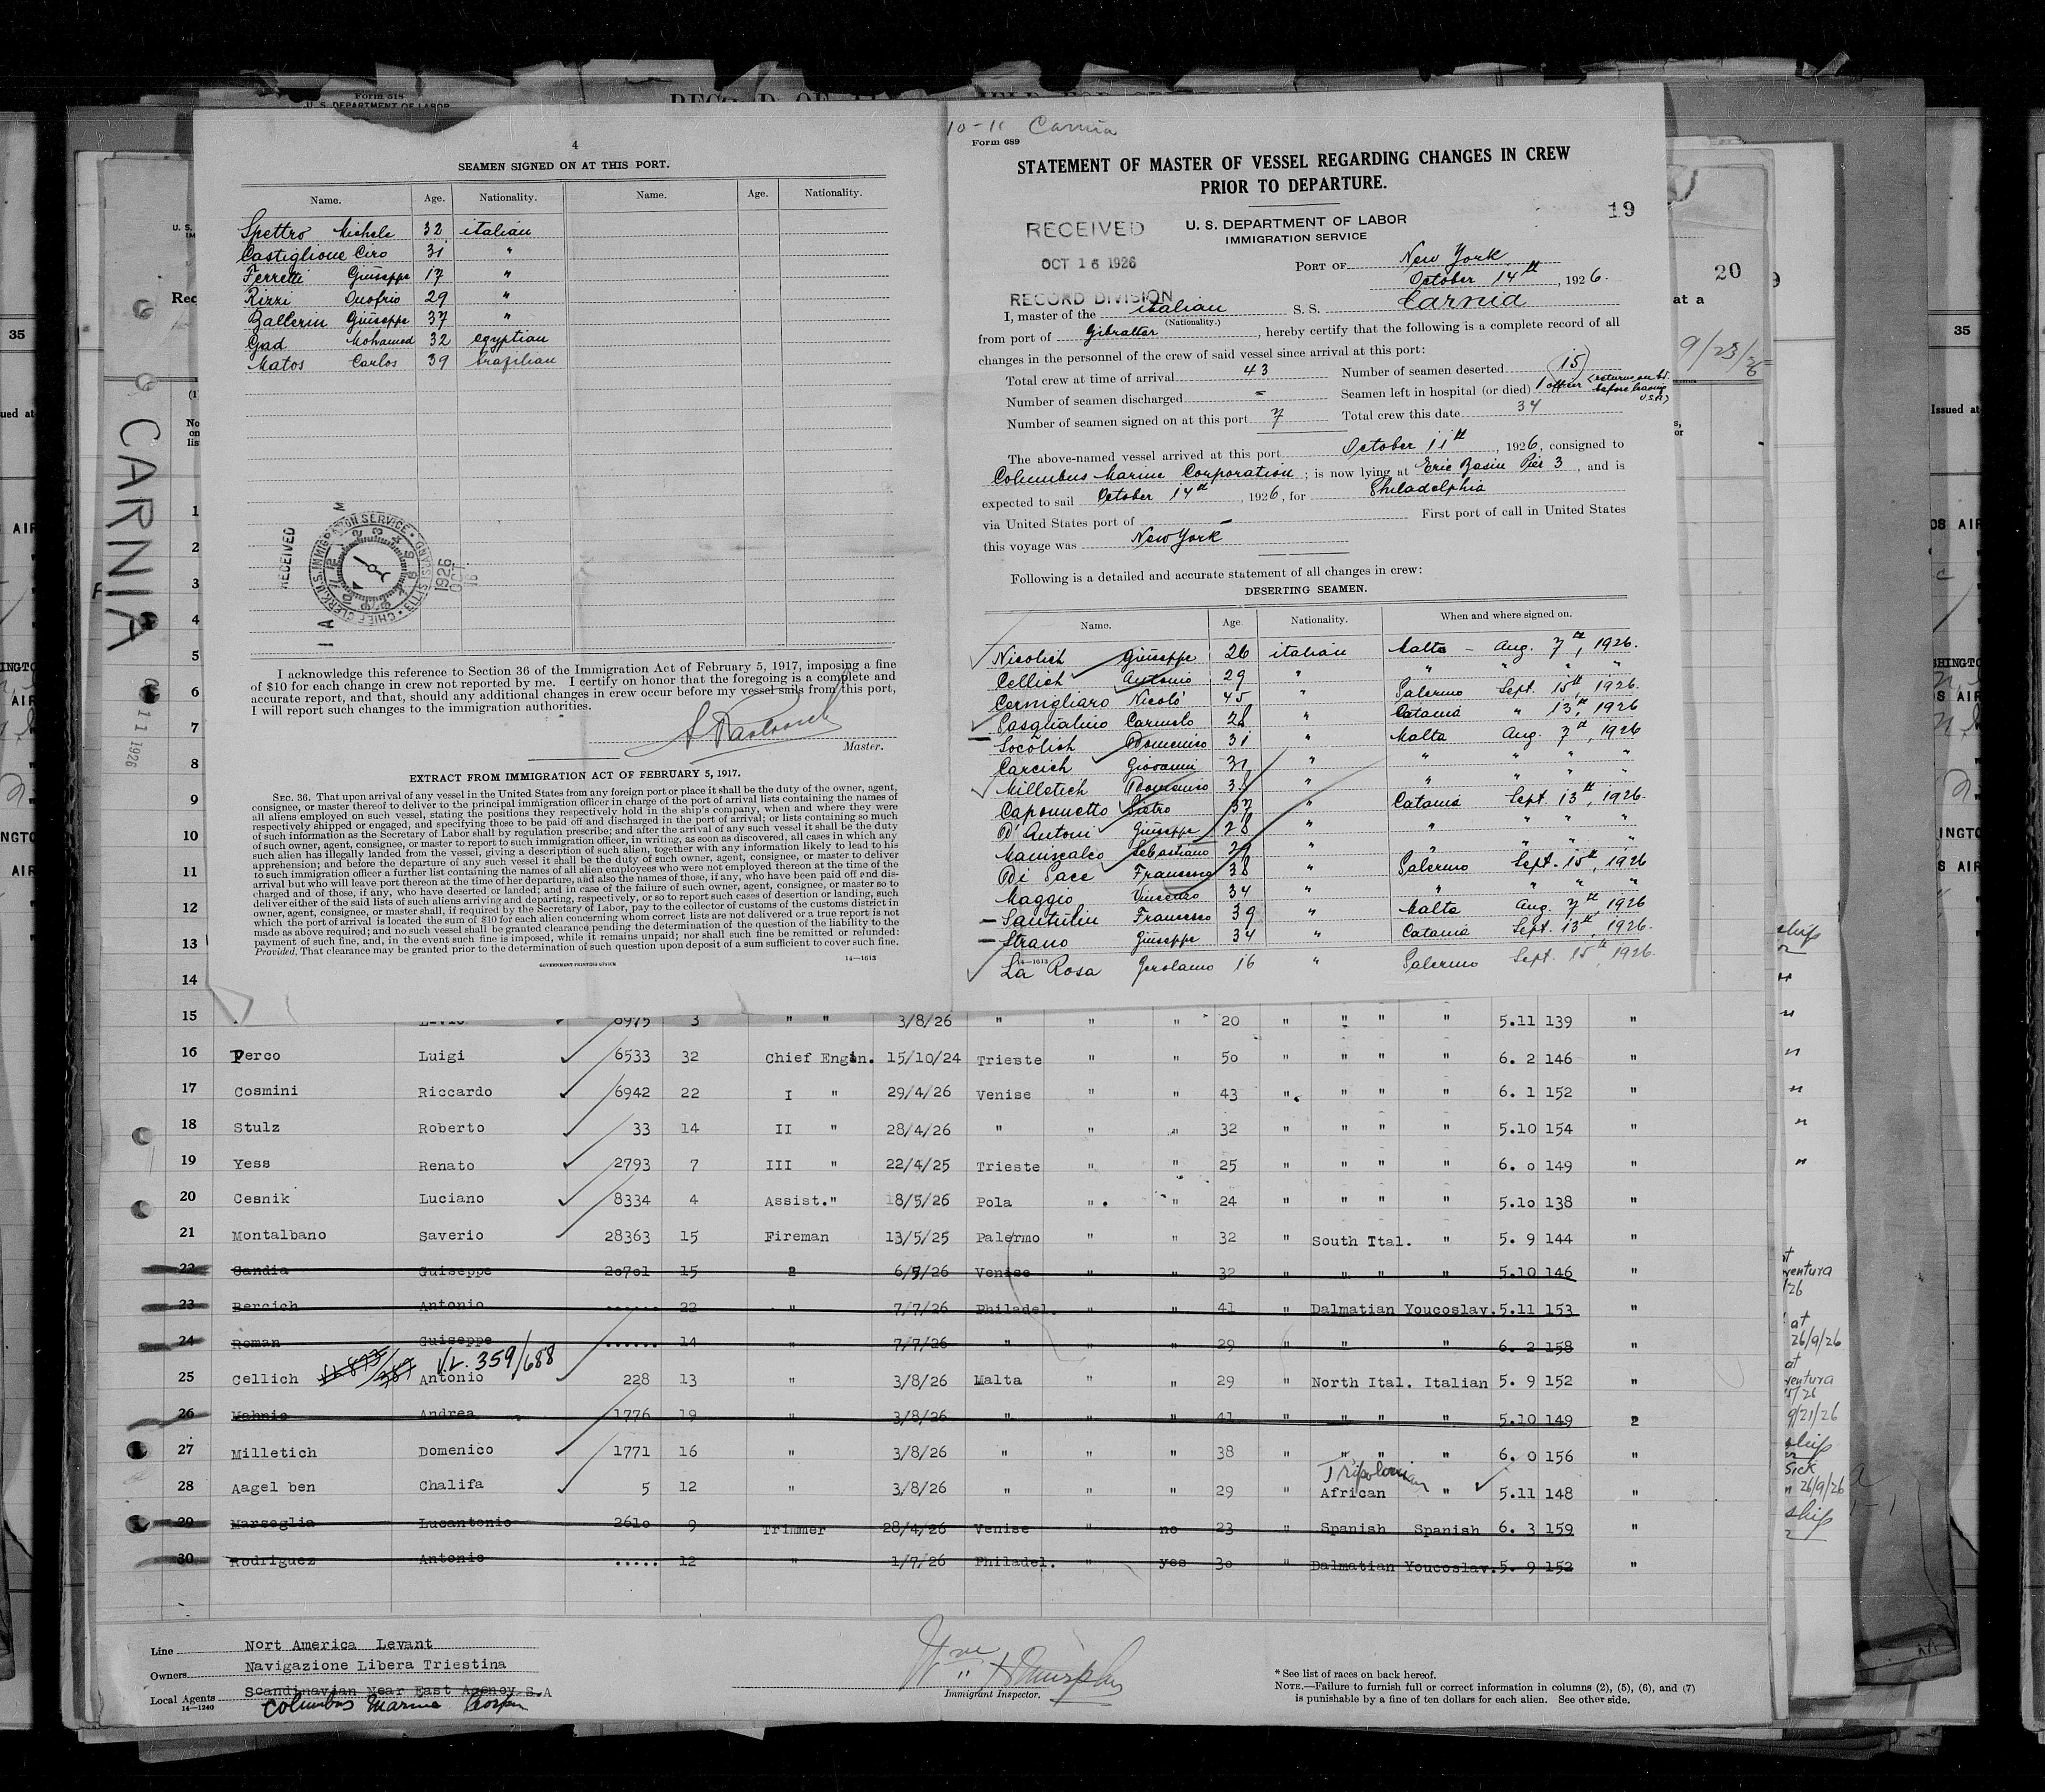 Form 618
U. S. DEPARTMENT OF LABOR
4
SEAMEN SIGNED ON AT THIS PORT.
Name. Age. Nationality. Name. Age. Nationality.
Spettro Michele 32 italian
Castiglione Ciro 31 "
Ferretti Giuseppe 17 "
Rizzi Onofrio 29 "
Ballerin Giuseppe 37 "
Gad Mohamed 32 egyptian
Matos Carlos 39 brasilian
RECEIVED
CHIEF CLERK U.S. IMMIGRATION SERVICE • ELLIS ISLAND
1926
OCT
16
I acknowledge this reference to Section 36 of the Immigration Act of February 5, 1917, imposing a fine
of $10 for each change in crew not reported by me. I certify on honor that the foregoing is a complete and
accurate report, and that, should any additional changes in crew occur before my vessel sails from this port,
I will report such changes to the immigration authorities.
Master.
EXTRACT FROM IMMIGRATION ACT OF FEBRUARY 5, 1917.
SEC. 36. That upon arrival of any vessel in the United States from any foreign port or place it shall be the duty of the owner, agent,
consignee, or master thereof to deliver to the principal immigration officer in charge of the port of arrival lists containing the names of
all aliens employed on such vessel, stating the positions they respectively hold in the ship's company, when and where they were
respectively shipped or engaged, and specifying those to be paid off and discharged in the port of arrival; or lists containing so much
of such information as the Secretary of Labor shall by regulation prescribe; and after the arrival of any such vessel it shall be the duty
of such owner, agent, consignee, or master to report to such immigration officer, in writing, as soon as discovered, all cases in which any
such alien has illegally landed from the vessel, giving a description of such alien, together with any information likely to lead to his
apprehension; and before the departure of any such vessel it shall be the duty of such owner, agent, consignee, or master to deliver
to such immigration officer a further list containing the names of all alien employees who were not employed thereon at the time of the
arrival but who will leave port thereon at the time of her departure, and also the names of those, if any, who have been paid off and dis-
charged and of those, if any, who have deserted or landed; and in case of the failure of such owner, agent, consignee, or master so to
deliver either of the said lists of such aliens arriving and departing, respectively, or so to report such cases of desertion or landing, such
owner, agent, consignee, or master shall, if required by the Secretary of Labor, pay to the collector of customs of the customs district in
which the port of arrival is located the sum of $10 for each alien concerning whom correct lists are not delivered or a true report is not
made as above required; and no such vessel shall be granted clearance pending the determination of the question of the liability to the
payment of such fine, and, in the event such fine is imposed, while it remains unpaid; nor shall such fine be remitted or refunded:
Provided, That clearance may be granted prior to the determination of such question upon deposit of a sum sufficient to cover such fine.
GOVERNMENT PRINTING OFFICE 14—1613
10-11 Carnia
Form 689
STATEMENT OF MASTER OF VESSEL REGARDING CHANGES IN CREW
PRIOR TO DEPARTURE.
19
RECEIVED
OCT 16 1926
RECORD DIVISION
U. S. DEPARTMENT OF LABOR
IMMIGRATION SERVICE
PORT OF New York
October 14th, 1926.
I, master of the italian S. S. Carnia
(Nationality.)
from port of Gibraltar, hereby certify that the following is a complete record of all
changes in the personnel of the crew of said vessel since arrival at this port:
Total crew at time of arrival 43 Number of seamen deserted (15)
Number of seamen discharged - Seamen left in hospital (or died) 1 officer (returns on bd. before leaving U.S.A.)
Number of seamen signed on at this port 7 Total crew this date 34
The above-named vessel arrived at this port October 11th, 1926, consigned to
Columbus Marine Corporation; is now lying at Erie Basin Pier 3, and is
expected to sail October 14th, 1926, for Philadelphia
via United States port of - First port of call in United States
this voyage was New York
Following is a detailed and accurate statement of all changes in crew:
DESERTING SEAMEN.
Name. Age. Nationality. When and where signed on.
Nicolich Giuseppe 26 italian Malta - Aug. 7th, 1926.
Cellich Antonio 29 " " " " "
Cernigliaro Nicolò 45 " Salerno Sept. 15th, 1926.
Pasqualino Carmelo 28 " Catania " 13th, 1926
Socolich Domenico 31 " Malta Aug. 7th, 1926
Carcich Giovanni 31 " " " " "
Milletich Domenico 38 " " " " "
Caponnetto Pietro 37 " Catania Sept. 13th, 1926.
D'Antoni Giuseppe 28 " " " " "
Maniscalco Sebastiano 29 " " " " "
Di Pace Francesco 38 " Salerno Sept. 15th, 1926
Maggio Vincenzo 34 " " " " "
Santulin Francesco 39 " Malta Aug. 7th, 1926
Strano Giuseppe 34 " Catania Sept. 13th, 1926.
14—1613
La Rosa Gerolamo 16 " Salerno Sept. 15th, 1926.
CARNIA
11 1926
20
at a
9/23/26
35
1
2
3
4
5
6
7
8
9
10
11
12
13
14
15 6975 3 " " 3/8/26 " " " 20 " " " " 5.11 139 "
16 Perco Luigi 6533 32 Chief Engin. 15/10/24 Trieste " " 50 " " " " 6. 2 146 "
17 Cosmini Riccardo 6942 22 I " 29/4/26 Venise " " 43 " " " " 6. 1 152 "
18 Stulz Roberto 33 14 II " 28/4/26 " " " 32 " " " " 5.10 154 "
19 Yess Renato 2793 7 III " 22/4/25 Trieste " " 25 " " " " 6. 0 149 "
20 Cesnik Luciano 8334 4 Assist." 18/5/26 Pola " " 24 " " " " 5.10 138 "
21 Montalbano Saverio 28363 15 Fireman 13/5/25 Palermo " " 32 " South Ital. " 5. 9 144 "
22 Candia Guiseppe 20701 15 " 6/5/26 Venise " " 32 " " " " 5.10 146 "
23 Bercich Antonio ...... 22 " 7/7/26 Philadel. " " 41 " Dalmatian Youcoslav. 5.11 153 "
24 Roman Guiseppe ...... 14 " 7/7/26 " " " 29 " " " 6. 2 158 "
V.L. 359/688
25 Cellich Antonio 228 13 " 3/8/26 Malta " " 29 " North Ital. Italian 5. 9 152 "
26 Mahnic Andrea 1776 19 " 3/8/26 " " " 41 " " " " 5.10 149 "
27 Milletich Domenico 1771 16 " 3/8/26 " " " 38 " " " " 6. 0 156 "
Tripolonian
28 Aagel ben Chalifa 5 12 " 3/8/26 " " " 29 " African " 5.11 148 "
29 Marseglia Lucantonio 2610 9 Trimmer 28/4/26 Venise " no 23 " Spanish Spanish 6. 3 159 "
30 Rodriguez Antonio ..... 12 " 1/7/26 Philadel. " yes 30 " Dalmatian Youcoslav. 5. 9 152 "
Line Nort America Levant
Owners Navigazione Libera Triestina
Local Agents Scandinavian Near East Agency S.A
14—1240 Columbus Marine Corpn
Immigrant Inspector.
* See list of races on back hereof.
NOTE.—Failure to furnish full or correct information in columns (2), (5), (6), and (7)
is punishable by a fine of ten dollars for each alien. See other side.
ship
ventura
at
26/9/26
at
ventura
9/21/26
ship
Sick
26/9/26
ship
35
Issued at